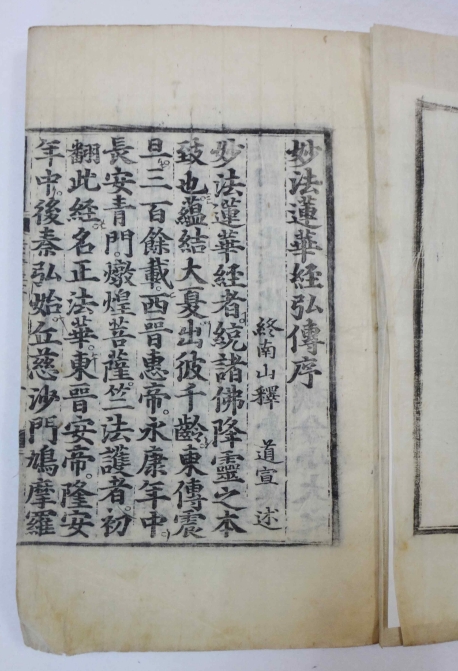 妙法蓮華經弘傳序
終南山釋 道宣 述
妙法蓮華經者。統諸佛降靈之本
致也。蘊結大夏。出彼千齡。東傳震
旦。三百餘載。西晉惠帝。永康年中
長安青門。燉煌菩薩。竺法護者。初
翻此經。名正法華。東晉安帝。隆安
年中。後秦弘始。丘慈沙門。鳩摩羅